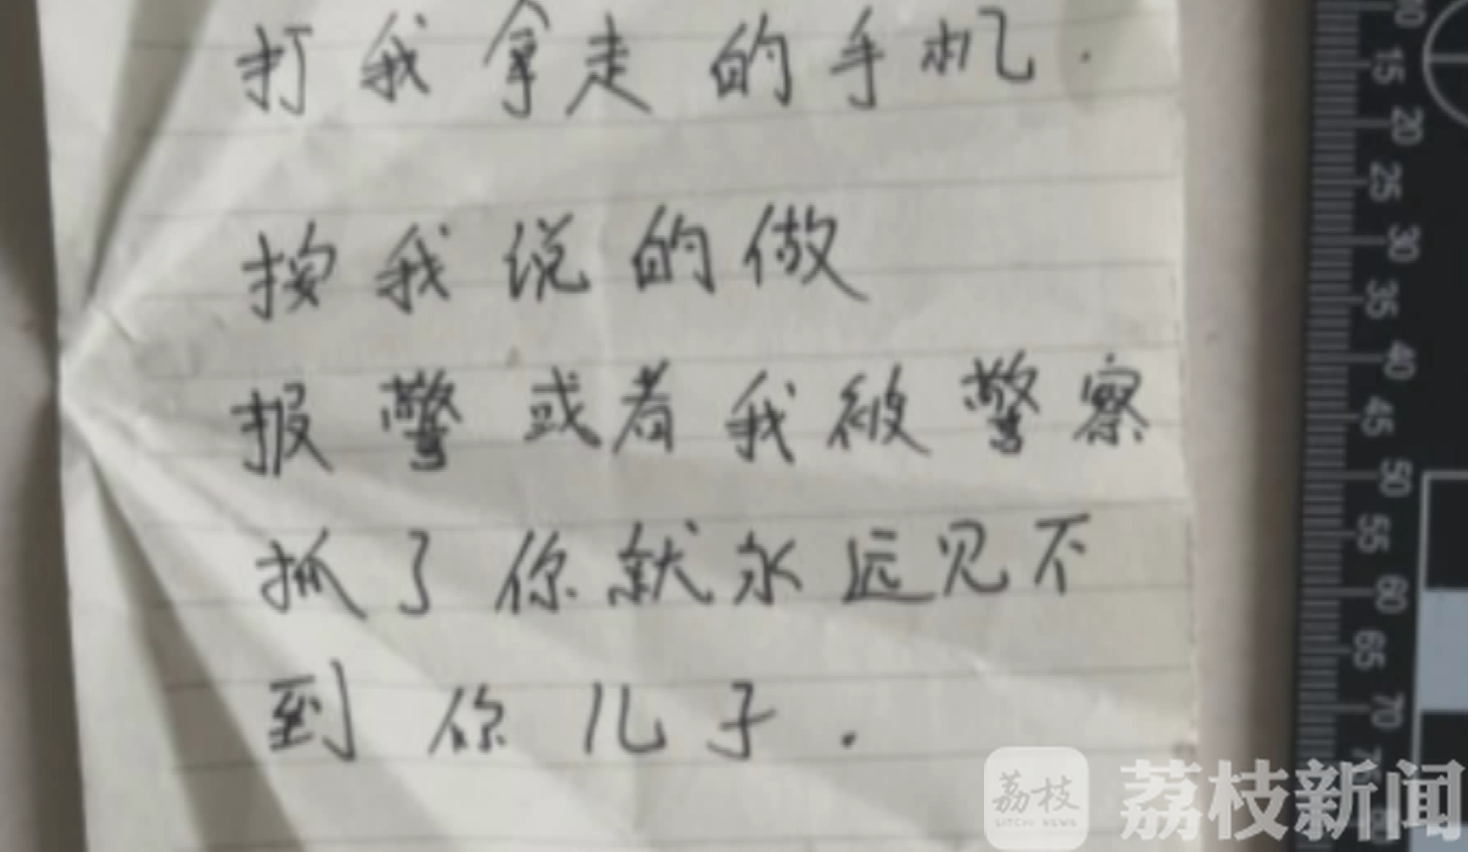 打我拿走的手机.
按我说的做
报警或者我被警察
抓了你就永远见不
到你儿子.
10
15
20
25
30
35
40
45
50
55
60
65
70
荔枝
LITCHI NEWS
荔枝新闻